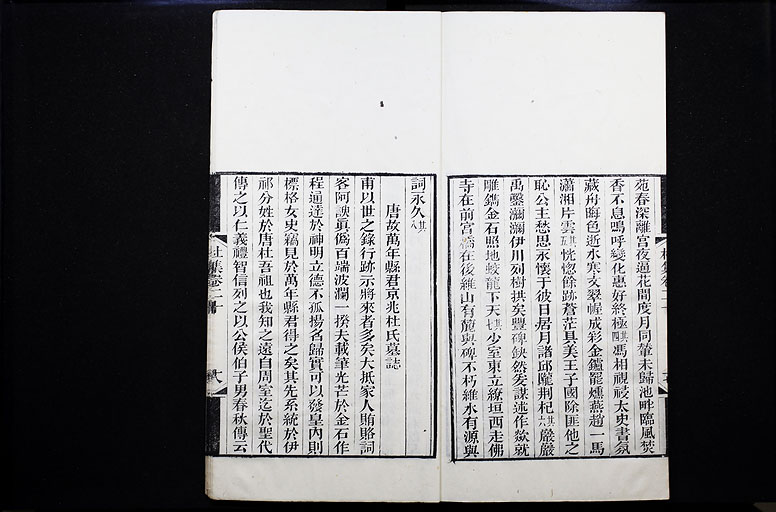 苑春深離宮夜逼花間度月同輦未歸池畔臨風焚
香不息嗚呼變化惠好終極其四馮相視祲太史書氛
藏舟晦色逝水寒文翠幄成彩金鑪罷燻燕趙一馬
瀟湘片雲其五恍惚餘跡蒼茫具美王子國除匪他之
恥公主愁思永懷于彼日居月諸邱隴荆杞其六巖巖
禹鑿瀰瀰伊川列樹拱矣豐碑缺然爰謀述作歘就
雕鐫金石照地蛟龍下天其七少室東立繚垣西走佛
寺在前宮橋在後維山有麓與碑不朽維水有源與
詞永久其八
唐故萬年縣君京兆杜氏墓誌
甫以世之錄行跡示將來者多矣大抵家人賄賂詞
客阿諛眞僞百端波瀾一揆夫載筆光芒於金石作
程通達於神明立德不孤揚名歸實可以發皇內則
標格女史竊見於萬年縣君得之矣其先系統於伊
祁分姓於唐杜吾祖也我知之遠自周室迄於聖代
傳之以仁義禮智信列之以公侯伯子男春秋傳云
杜集卷二十
八